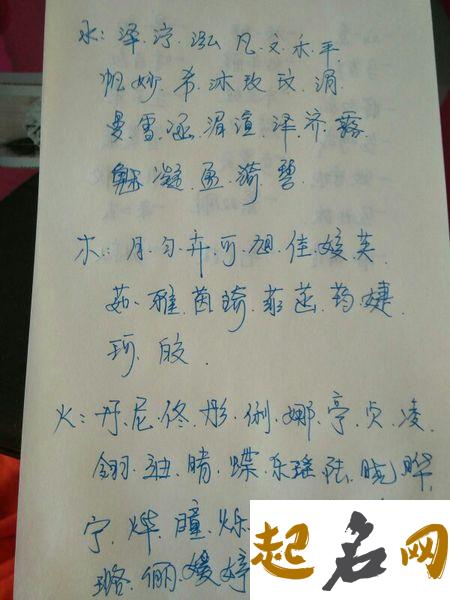 水：泽.泞.泓.凡.文.禾.平.
帆.妙.希.冰.玫.玟.湄.
曼.雪.涵.湄.渲.泽.济.露.
魅.凝.盈.漪.碧.
木：月.匀.卉.可.旭.佳.媛.芙.
茹.雅.茵.琦.菲.蕊.药.婕.
珂.皎.
火：丹.尼.佟.彤.俐.娜.亭.贞.凌.
翎.迪.晴.蝶.东.瑶.陆.晓.晔.
宁.烨.瞳.烁.
璐.俪.嫒.婷
起名网